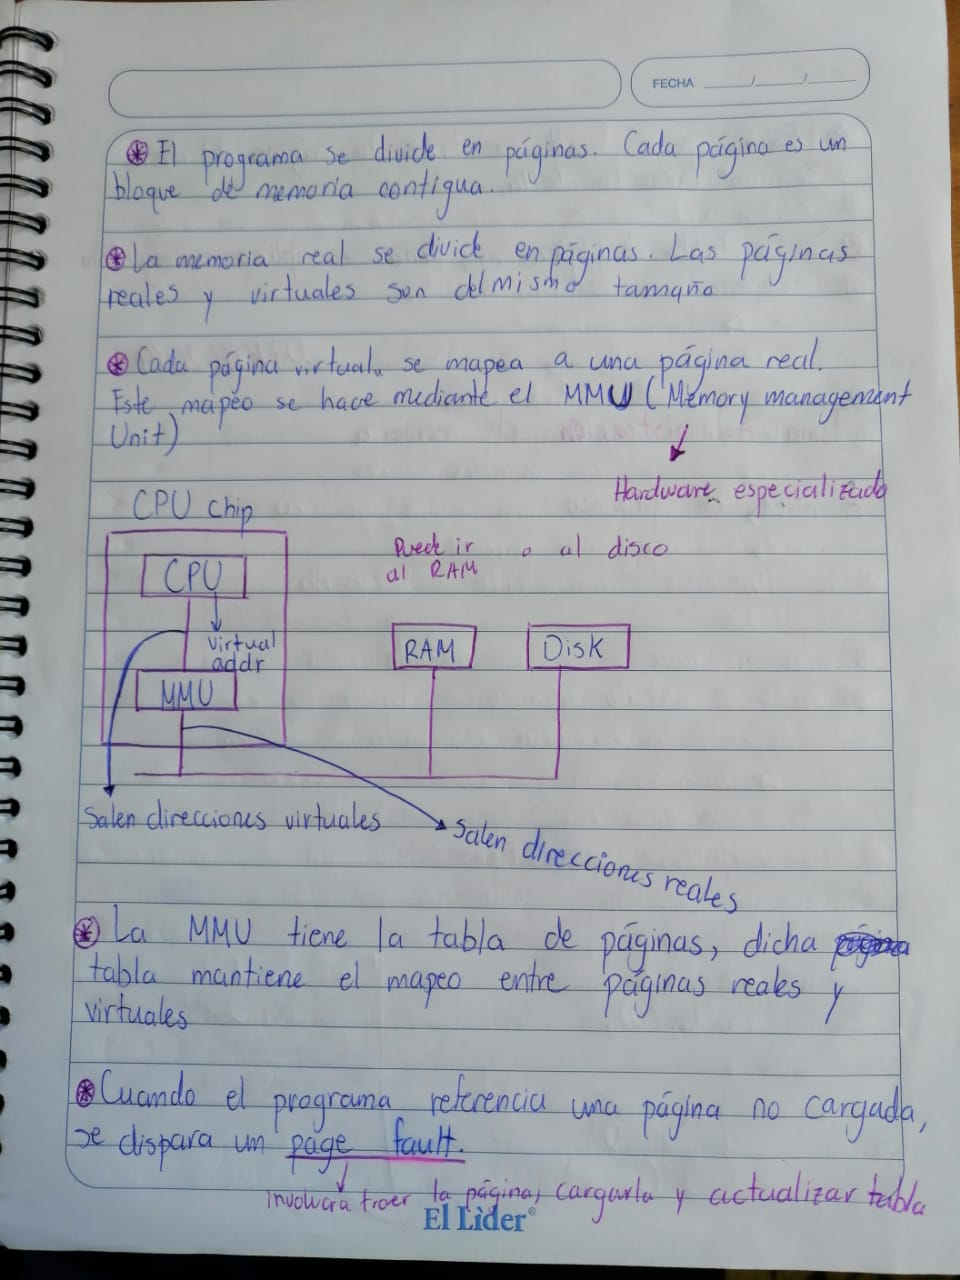 FECHA ____/____/____
⊛ El programa se divide en páginas. Cada página es un
bloque de memoria contigua.
⊛ La memoria real se divide en páginas. Las páginas
reales y virtuales son del mismo tamaño
⊛ Cada página virtual se mapea a una página real.
Este mapeo se hace mediante el MMU (Memory management
Unit)
Hardware especializado
CPU chip
Puede ir o al disco
al RAM
CPU
virtual
addr
RAM
Disk
MMU
Salen direcciones virtuales
Salen direcciones reales
⊛ La MMU tiene la tabla de páginas, dicha
tabla mantiene el mapeo entre páginas reales y
virtuales
⊛ Cuando el programa referencia una página no cargada,
se dispara un page fault.
involucra traer la página, cargarla y actualizar tabla
El Lider®